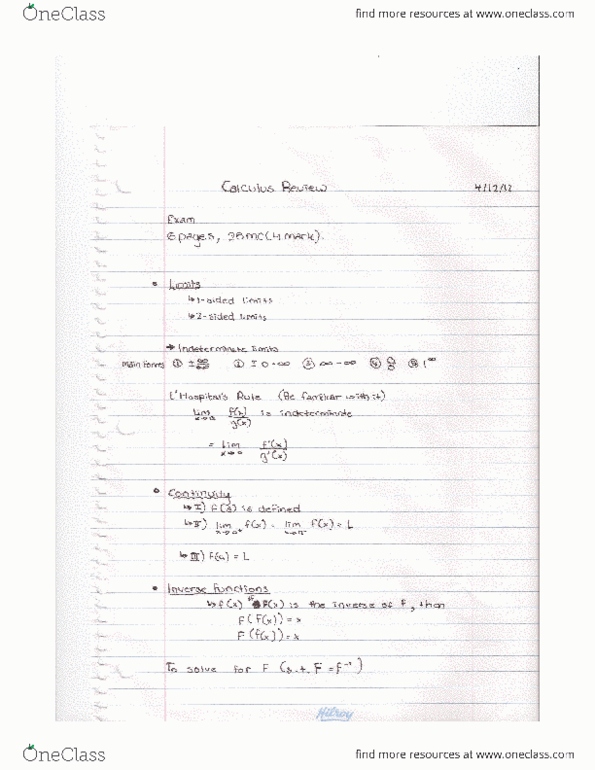 OneClass
find more resources at www.oneclass.com
Calculus Review 4/12/12
Exam
6 pages, 28 MC (4 mark).
• Limits
↳ 1-sided limits
↳ 2-sided limits
→ Indeterminate limits
Main Forms ① ± ∞/∞ ② ± 0·∞ ③ ∞-∞ ④ 0/0 ⑤ 1^∞
L'Hospital's Rule (Be familiar with it)
lim f(x)/g(x) is indeterminate
= lim f'(x)/g'(x)
• Continuity
↳ I) f(a) is defined
↳ II) lim f(x) = lim f(x) = L
↳ III) f(a) = L
• Inverse Functions
↳ f(x) F(x) is the inverse of f, then
F(f(x)) = x
F(f(x)) = x
To solve for F (s.t. F = f⁻¹)
Hilroy
OneClass
find more resources at www.oneclass.com